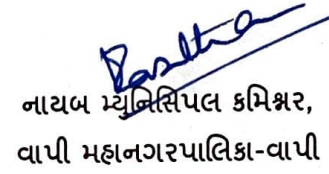 નાયબ મ્યુનિસિપલ કમિશ્નર,
વાપી મહાનગરપાલિકા-વાપી